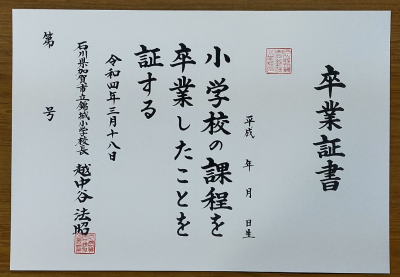 卒業証書
平成　年　月　日生
小学校の課程を
卒業したことを
証する
令和四年三月十八日
石川県加賀市立錦城小学校長　越中谷　法昭
第　号